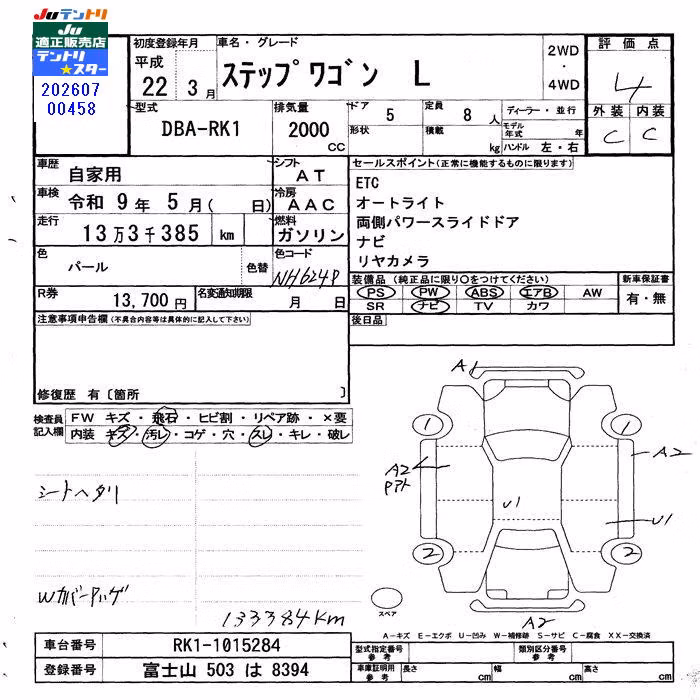 Juテントリ
Ju
適正販売店
テントリ
★スター
202607
00458
初度登録年月
平成
22 3 月
車名・グレード
ステップワゴン L
2WD
・
4WD
評価点
4
外装 内装
C C
型式
DBA-RK1
排気量
2000
CC
ドア 5
形状
定員 8 人
積載 kg
ディーラー・並行
モデル年式 年
ハンドル 左・右
車歴 自家用
シフト AT
車検 令和 9 年 5 月( 日)
冷房 AAC
走行 13 万 3 千 385 km
燃料 ガソリン
色 パール 色替
色コード NH624P
R券 13,700 円
名変通知期限 月 日
セールスポイント(正常に機能するものに限ります)
ETC
オートライト
両側パワースライドドア
ナビ
リヤカメラ
装備品 (純正品に限り○をつけてください)
PS PW ABS エアB AW
SR ナビ TV カワ
新車保証書
有・無
後日品
注意事項申告欄(不具合内容等は具体的に記入して下さい)
修復歴 有〔箇所 〕
検査員記入欄
FW キズ・飛石・ヒビ割・リペア跡・×要
内装 キズ・汚レ・コゲ・穴・スレ・キレ・破レ
シートヘタリ
Wカバー
133384Km
A1
1 1
A2
A2
U1
U1
2 2
スペア
A2
A-キズ E-エクボ U-凹み W-補修跡 S-サビ C-腐食 XX-交換済
車台番号 RK1-1015284
登録番号 富士山 503 は 8394
型式指定番号 参考
類別区分番号 参考
車庫証明用 参考 長さ cm 幅 cm 高さ cm